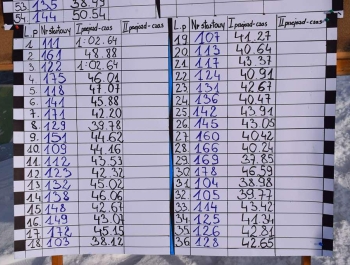 53 135 38.99
54 144 50.54
L.p Nr startowy I przejazd-czas II przejazd-czas
1 111 1:02.64
2 161 45.88
3 122 1:02.64
4 175 46.01
5 118 47.07
6 141 45.88
7 171 42.20
8 129 39.78
9 151 44.62
10 109 41.16
11 112 43.53
12 123 42.32
13 132 45.02
14 138 46.06
15 148 42.67
16 149 43.07
17 172 45.15
18 103 38.12
L.p Nr startowy I przejazd-czas II przejazd-czas
19 107 41.27
20 113 40.64
21 117 43.37
22 124 40.91
23 131 42.67
24 136 40.47
25 142 43.91
26 145 43.09
27 160 40.42
28 166 40.24
29 169 37.85
30 178 46.59
31 104 38.98
32 105 39.77
33 114 43.42
34 125 41.34
35 126 42.81
36 128 42.65